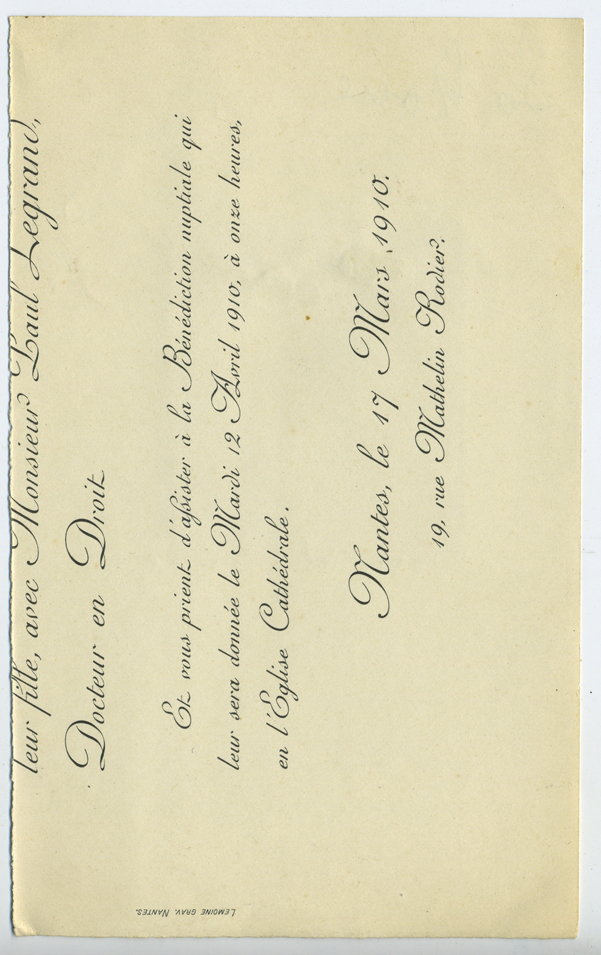 leur fille, avec Monsieur Paul Legrand,
Docteur en Droit
Et vous prient d'assister à la Bénédiction nuptiale qui
leur sera donnée le Mardi 12 Avril 1910, à onze heures,
en l'Eglise Cathédrale.
Nantes, le 17 Mars 1910.
19, rue Mathelin Rodier.
LEMOINE GRAV. NANTES.